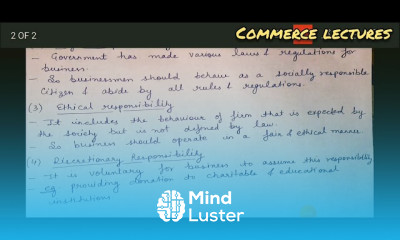 2 OF 2
Commerce lectures
- Government has made various laws & regulations for
business.
- So businessmen should behave as a socially responsible
Citizen & abide by all rules & regulations.
(3) Ethical responsibility
- It includes the behaviour of firm that is expected by
the society but is not defined by law.
- So business should operate in a fair & ethical manner
(4) Discretionary Responsibility
- It is voluntary for business to assume this responsibility
- eg providing donation to charitable & educational
institutions
Mind
Luster